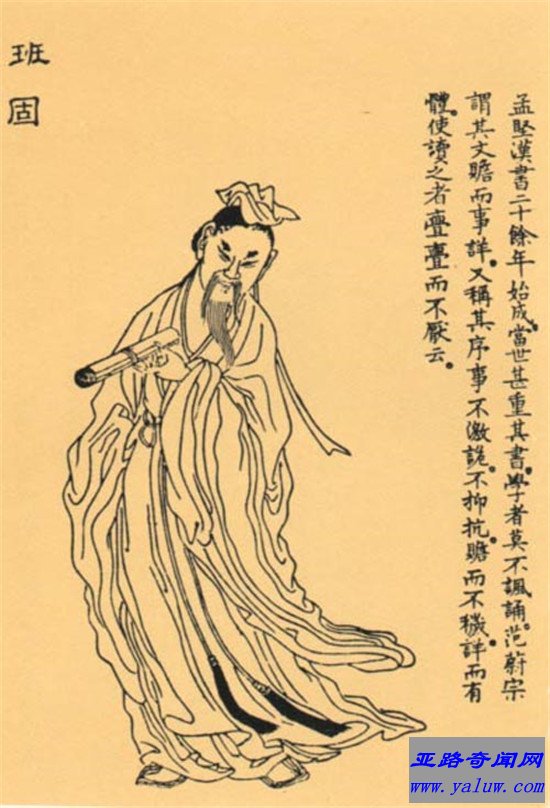 班固
孟堅漢書二十餘年始成。當世甚重其書。學者莫不諷誦。范蔚宗
謂其文贍而事詳。又稱其序事不激詭。不抑抗。贍而不穢。詳而有
體。使讀之者亹亹而不厭云。
亚路奇闻网
www.yaluw.com